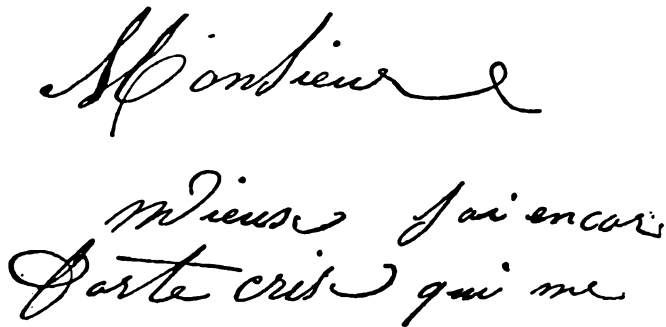 Monsieur
mieux jai encor
porte cris qui me